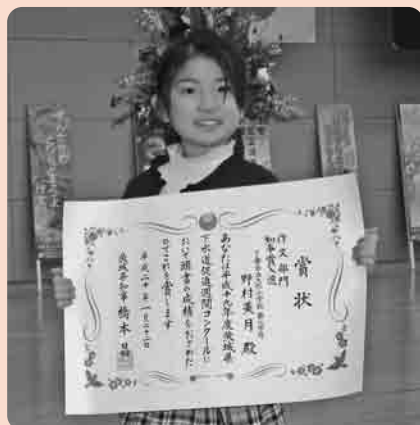 賞状
作文部門
知事賞入選
野村美月 殿
あなたは平成十九年度茨城県
下水道促進週間コンクールに
おいて頭書の成績をおさめた
のでこれを賞します
平成二十年一月二十二日
茨城県知事 橋本昌